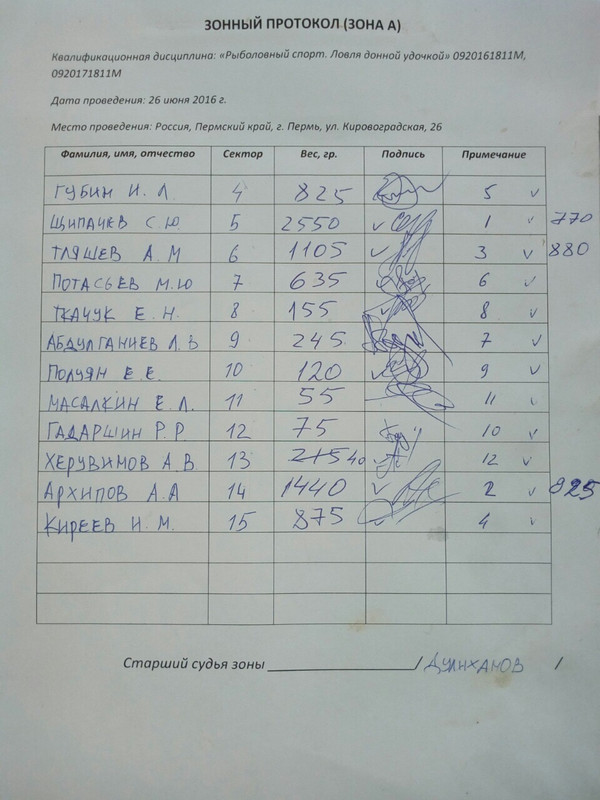 ЗОННЫЙ ПРОТОКОЛ (ЗОНА А)
Квалификационная дисциплина: «Рыболовный спорт. Ловля донной удочкой» 0920161811М,
0920171811М
Дата проведения: 26 июня 2016 г.
Место проведения: Россия, Пермский край, г. Пермь, ул. Кировоградская, 26
Фамилия, имя, отчество Сектор Вес, гр. Подпись Примечание
ГУБИН И. Л 4 825 5 ✓
ЩИПАЧЕВ С.Ю 5 2550 ✓ 1 ✓ 770
ТЛЯШЕВ А.М 6 1105 ✓ 3 ✓ 880
ПОТАСЬЕВ М.Ю 7 635 ✓ 6 ✓
ТКАЧУК Е.Н. 8 155 ✓ 8 ✓
АБДУЛГАНИЕВ Л.В 9 245 7 ✓
ПОЛУЯН Е.Е. 10 120 ✓ 9 ✓
МАСАЛКИН Е.Л. 11 55 11 ✓
ГАДАРШИН Р.Р. 12 75 10 ✓
ХЕРУВИМОВ А.В 13 215 40 12 ✓
АРХИПОВ А.А 14 1440 ✓ 2 ✓ 825
КИРЕЕВ И.М. 15 875 ✓ 4 ✓
Старший судья зоны ____________________/ /